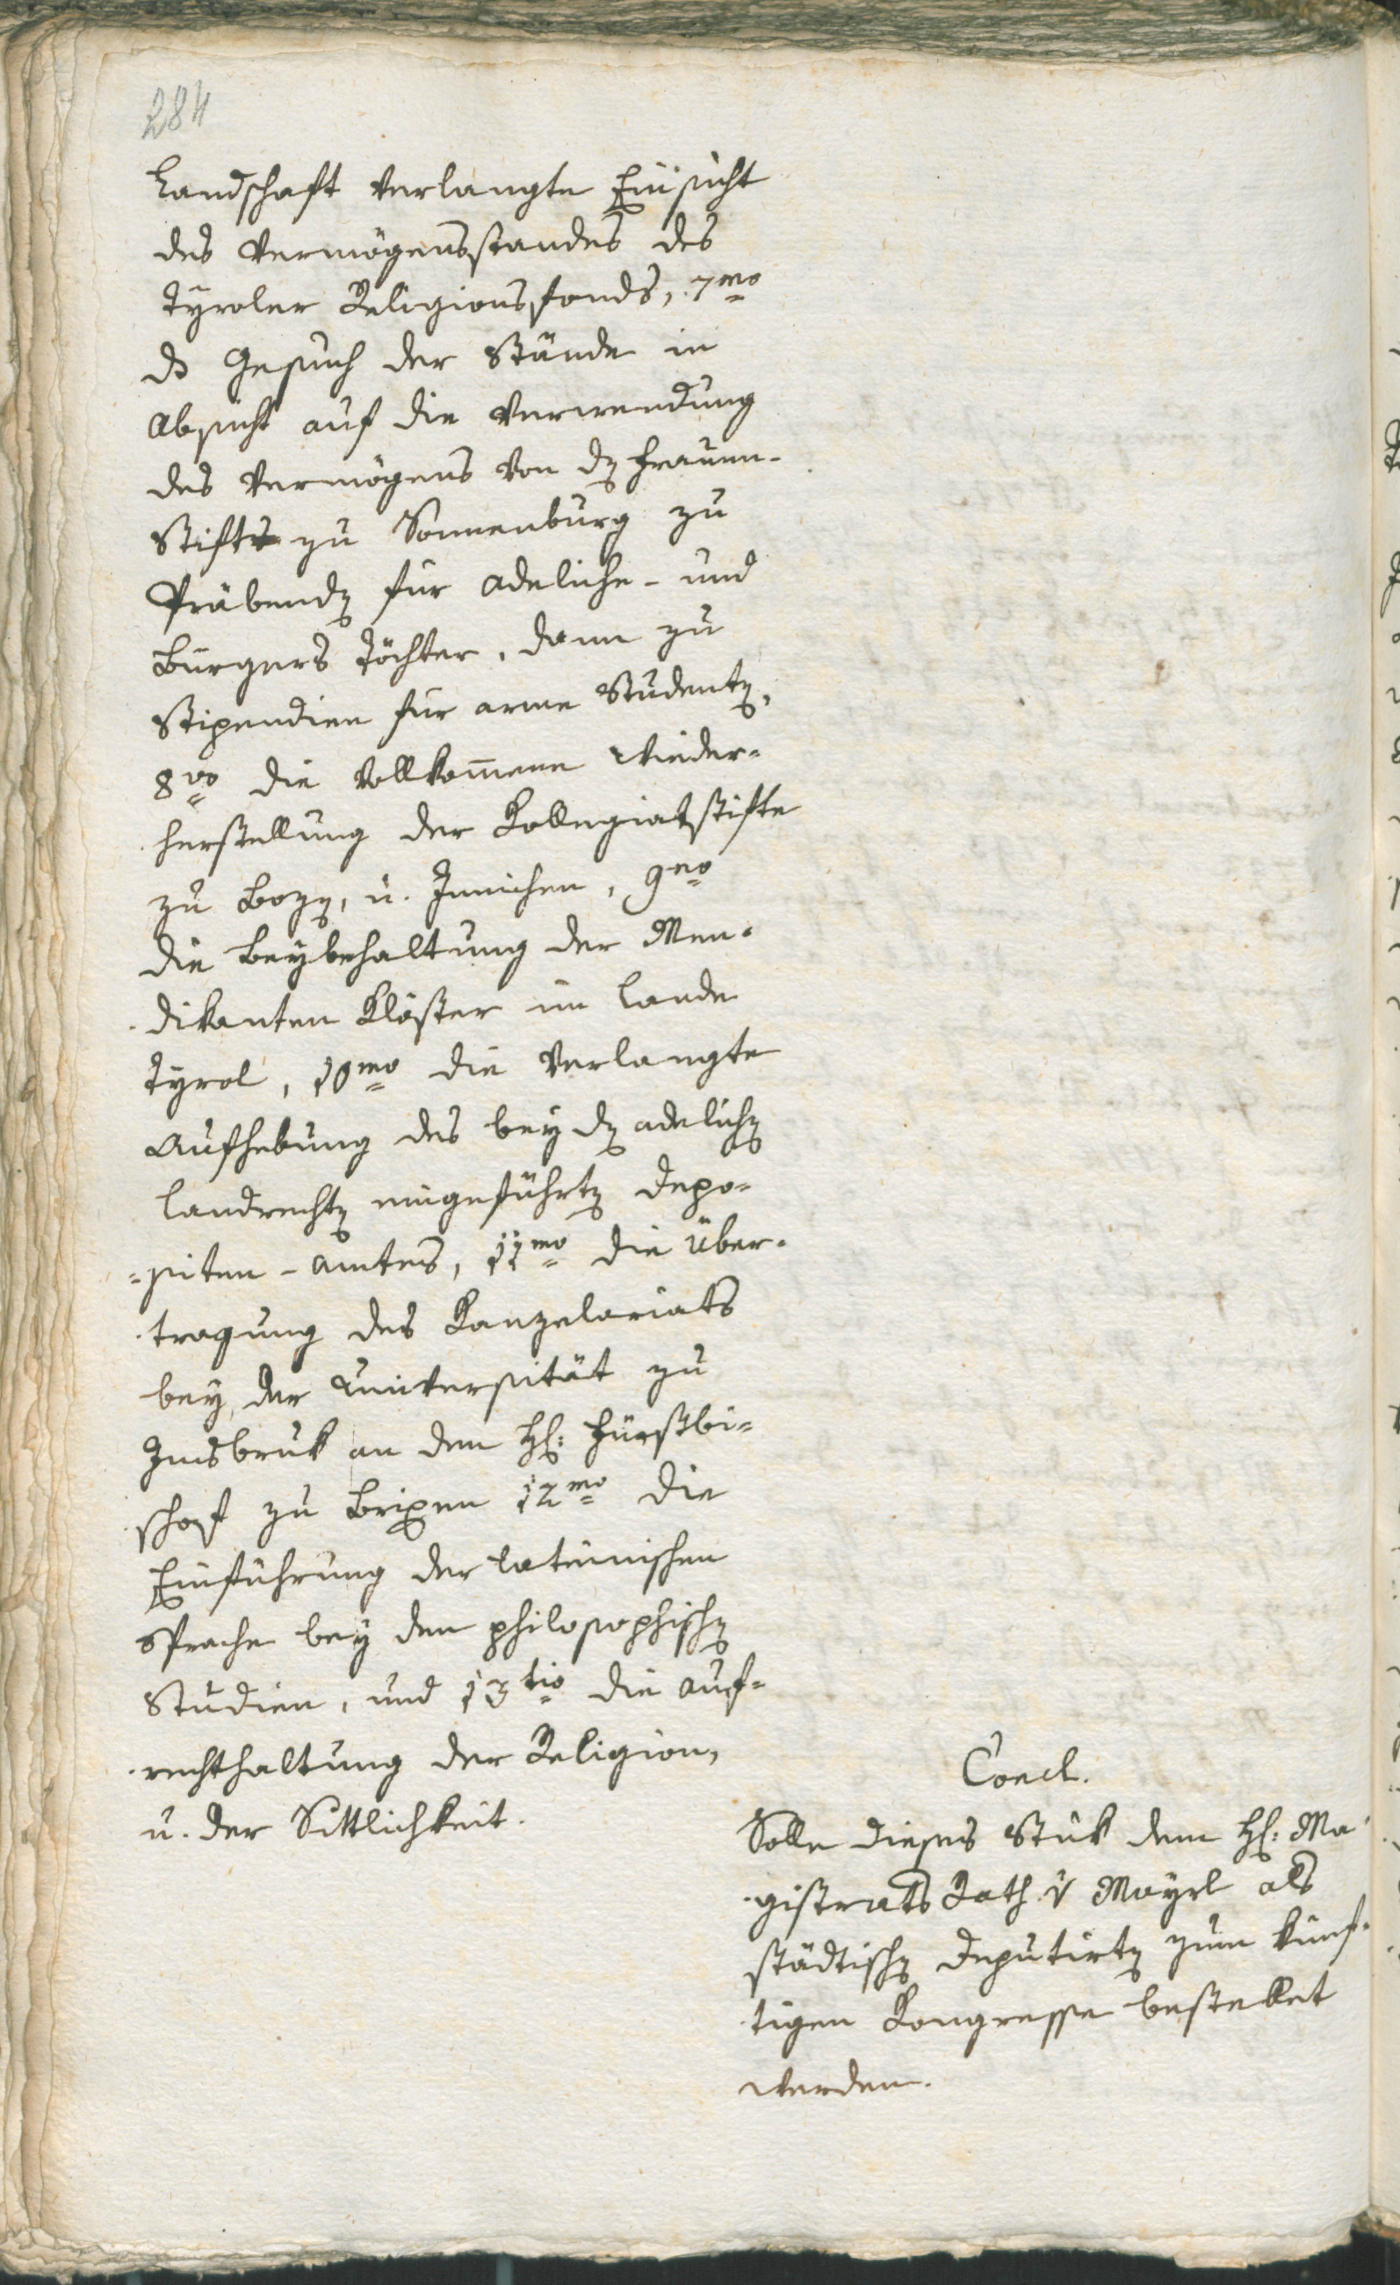 284
Landschaft verlangte Einsicht
des Vermögensstandes des
Tyroler Religionsfonds, 7mo
dz Gesuch der Stände in
Absicht auf die Verwendung
des Vermögens von dem Frauen-
Stifte zu Sonnenburg zu
Präbenden für adeliche- und
Bürgers Töchter, dann zu
Stipendien für arme Studenten,
8vo die vollkom̅ene Wieder-
herstellung der Kollegiatstifte
zu Bozen, u. Innichen, 9no
die Beybehaltung der Men-
dikanten Klöster im Lande
Tyrol, 10mo die verlangte
Aufhebung des bey den adelichen
Landrechten eingeführten Depo-
=siten-Amtes, 11mo die Über-
tragung des Kanzelariats
bey der Universität zu
Innsbruk an den H: Fürstbi=
schof zu Brixen 12mo die
Einführung der lateinischen
Sprache bey den philosophischen
Studien, und 13tio die Auf=
rechthaltung der Religion,
u. der Sittlichkeit.
Concl.
Solle dieses Stük dem H: Ma
gistrats Rath v Mayrl als
städtischen Deputirten zum künf-
tigen Kongresse bestellet
werden.